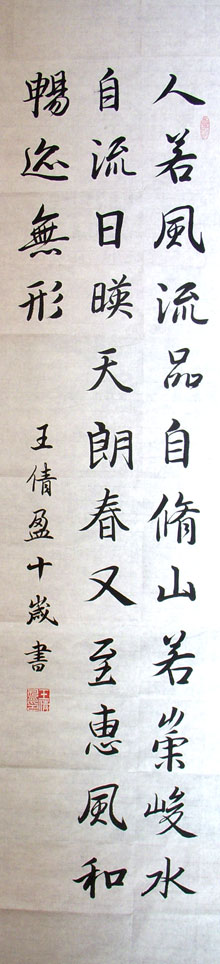 人若風流品自脩山若崇峻水
自流日暎天朗春又至惠風和
暢迹無形
王倩盈十歲書